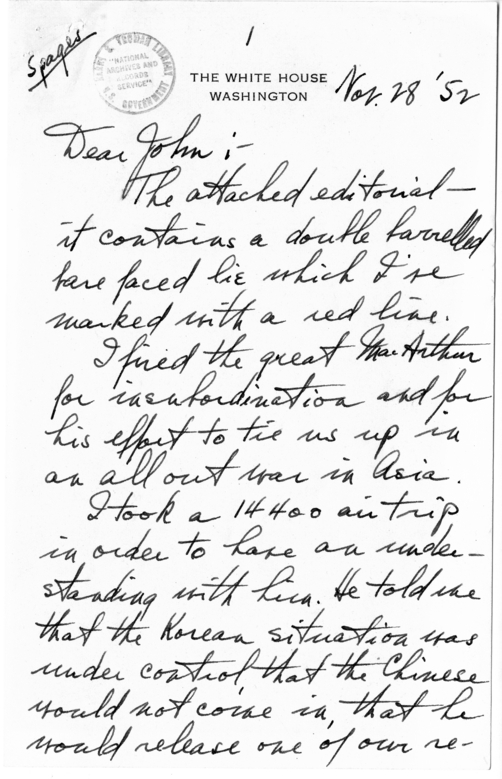 1
5 pages
HARRY S. TRUMAN LIBRARY
"NATIONAL
ARCHIVES AND
RECORDS
SERVICE"
U.S. GOVERNMENT
THE WHITE HOUSE
WASHINGTON
Nov. 28 '52
Dear John:-
The attached editorial —
it contains a double barrelled
bare faced lie which I've
marked with a red line.
I fired the great MacArthur
for insubordination and for
his effort to tie us up in
an all out war in Asia.
I took a 14400 air trip
in order to have an under-
standing with him. He told me
that the Korean situation was
under control, that the Chinese
would not come in, that he
would release one of our re-